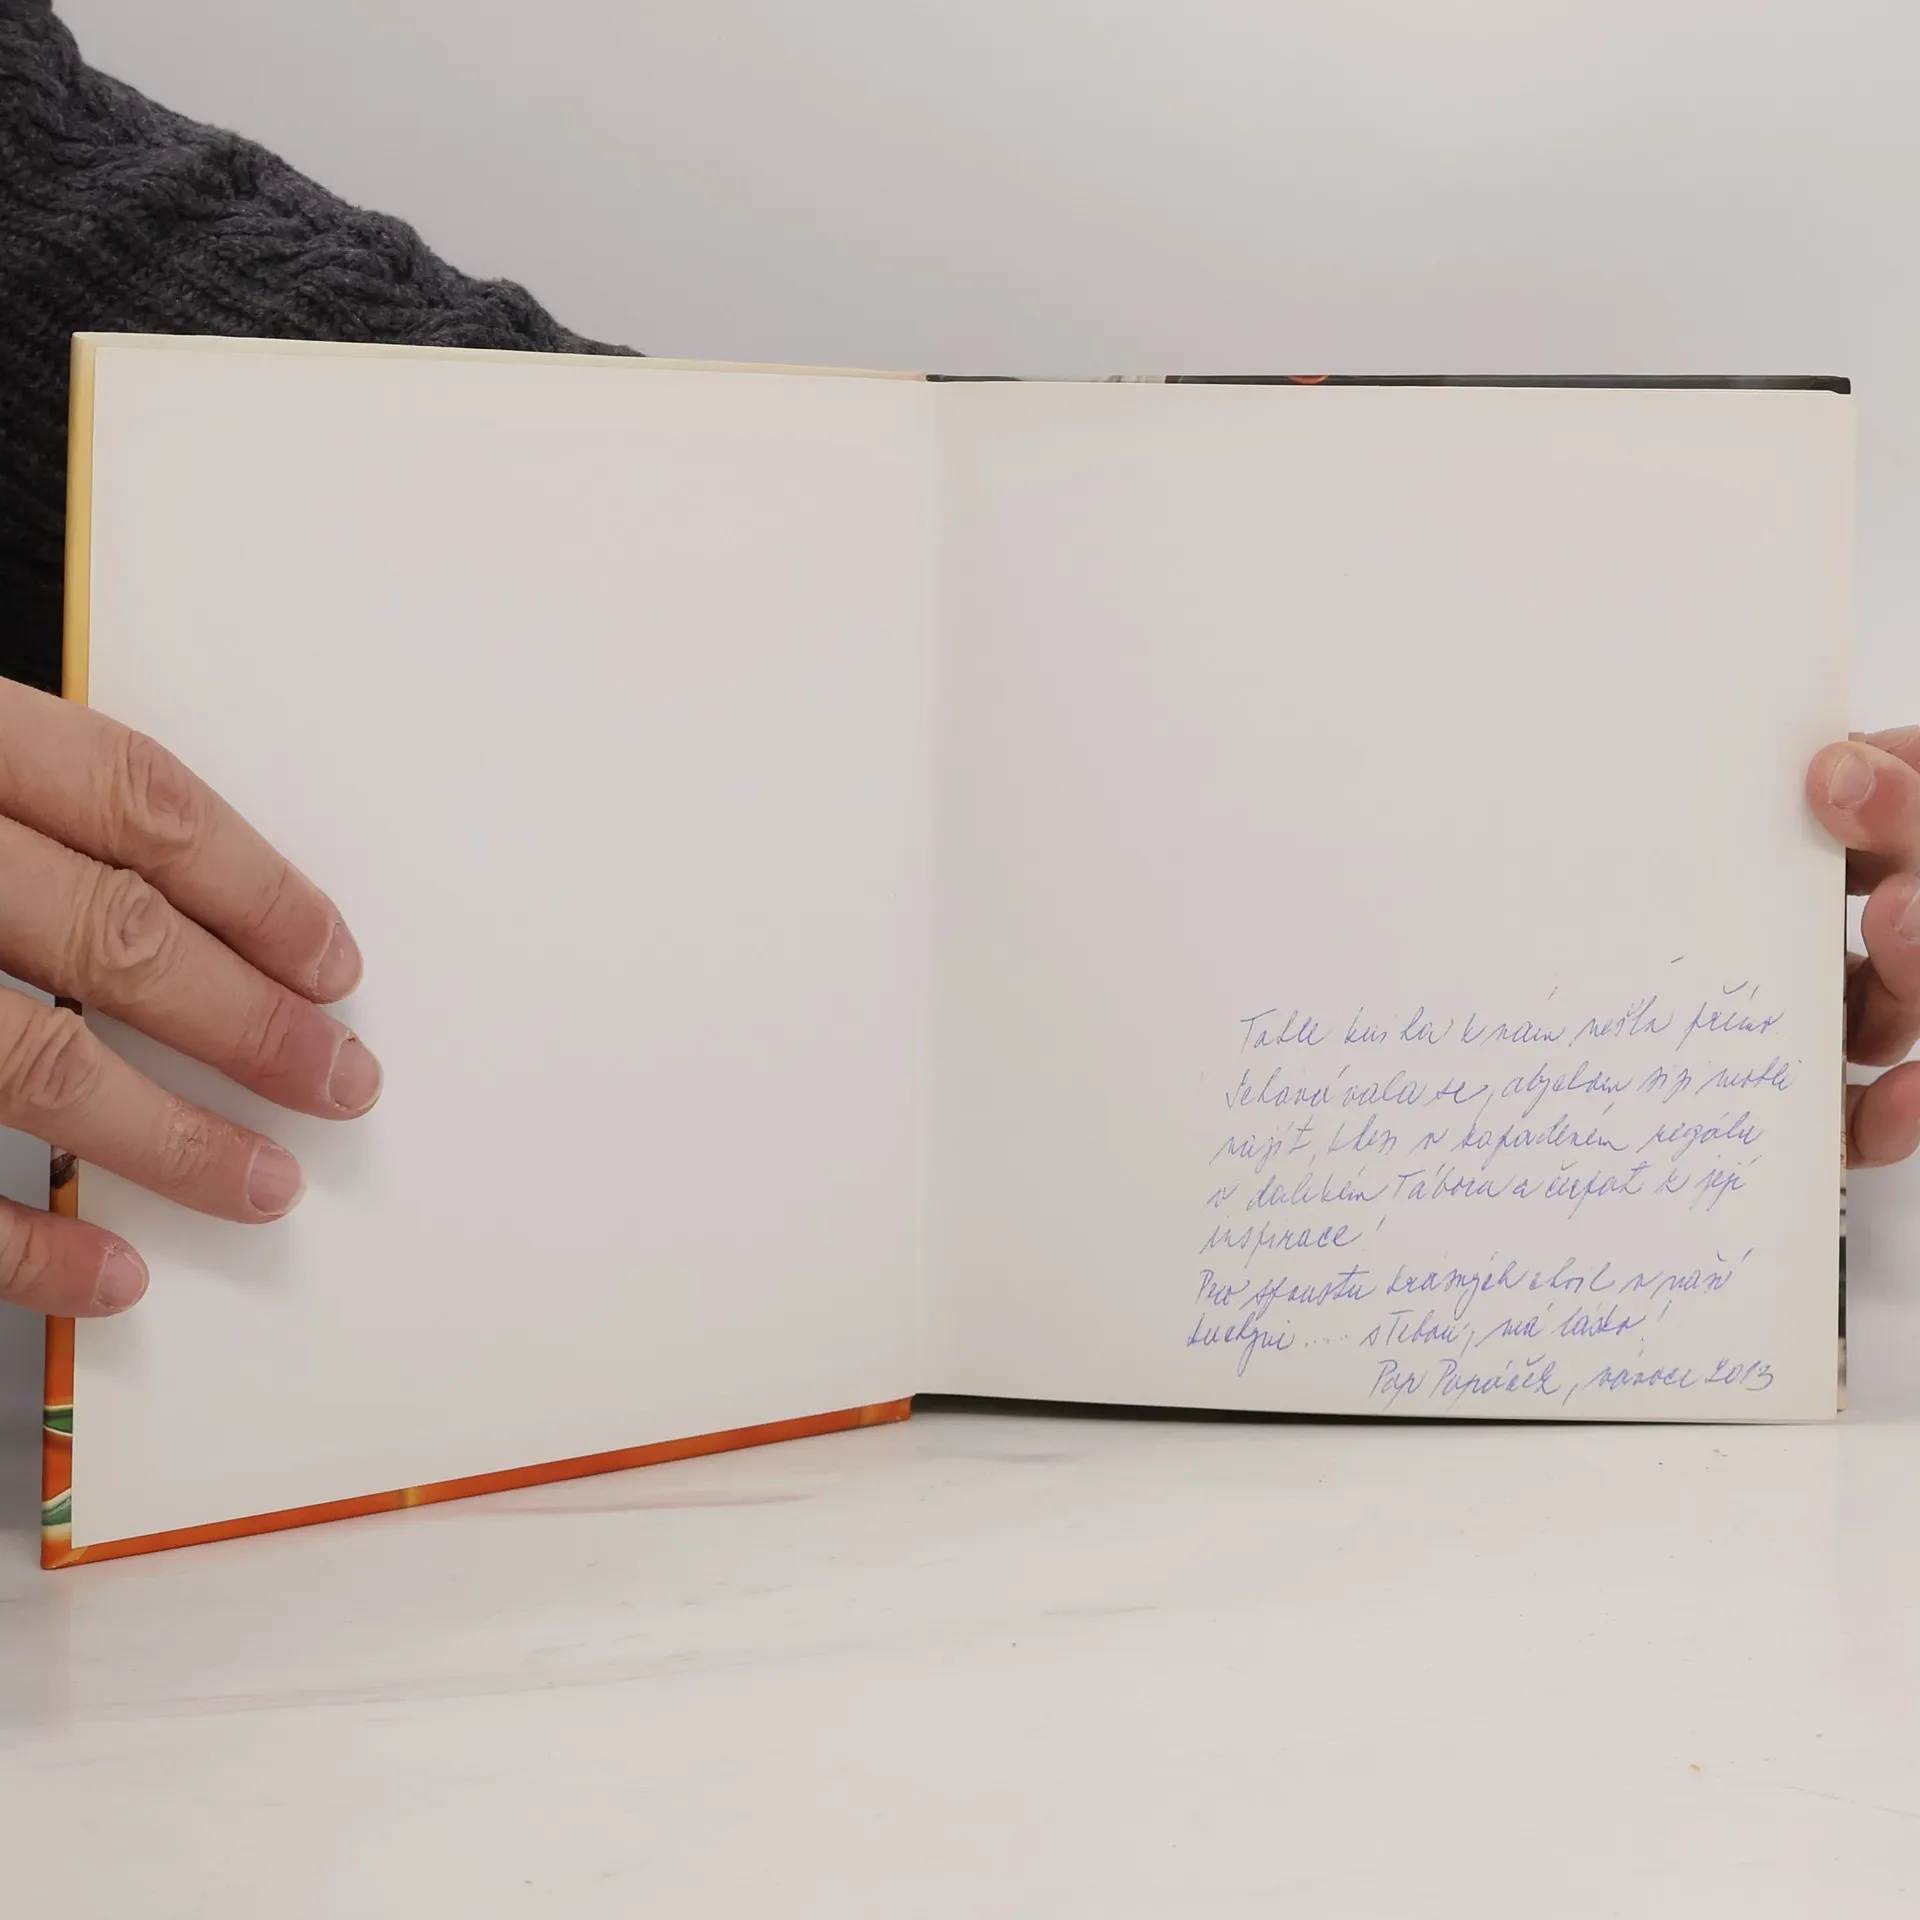 Tahle kniha k nám nešla přímo.
Schovávala se, abychom si ji mohli
najít, kdesi v zapadeném regálu
v dalekém Táboru a čerpat z její
inspirace!
Pro spoustu krásných chvil v naší
kuchyni..... s Tebou, má lásko!
Pap Papáček, vánoce 2013